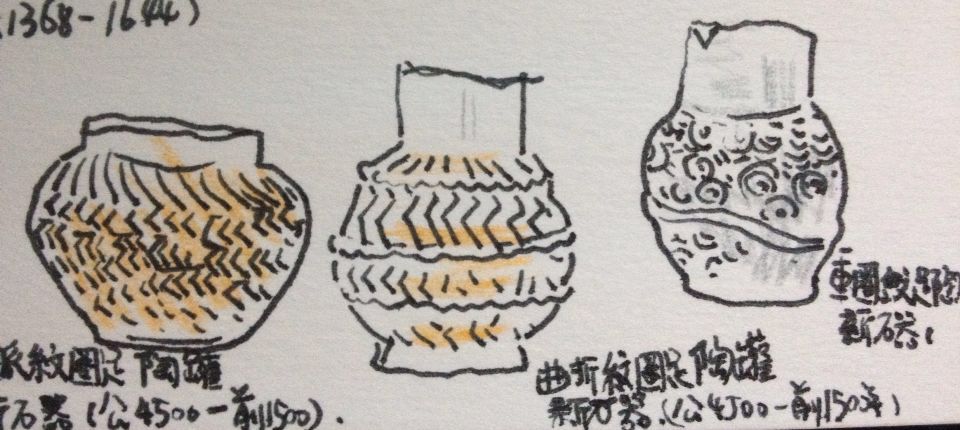 1368-1644)
纹圈足陶罐
石器(公4500-前1500).
曲折纹圈足陶罐
新石器(公4500-前150年)
重圈纹足陶
新石器(